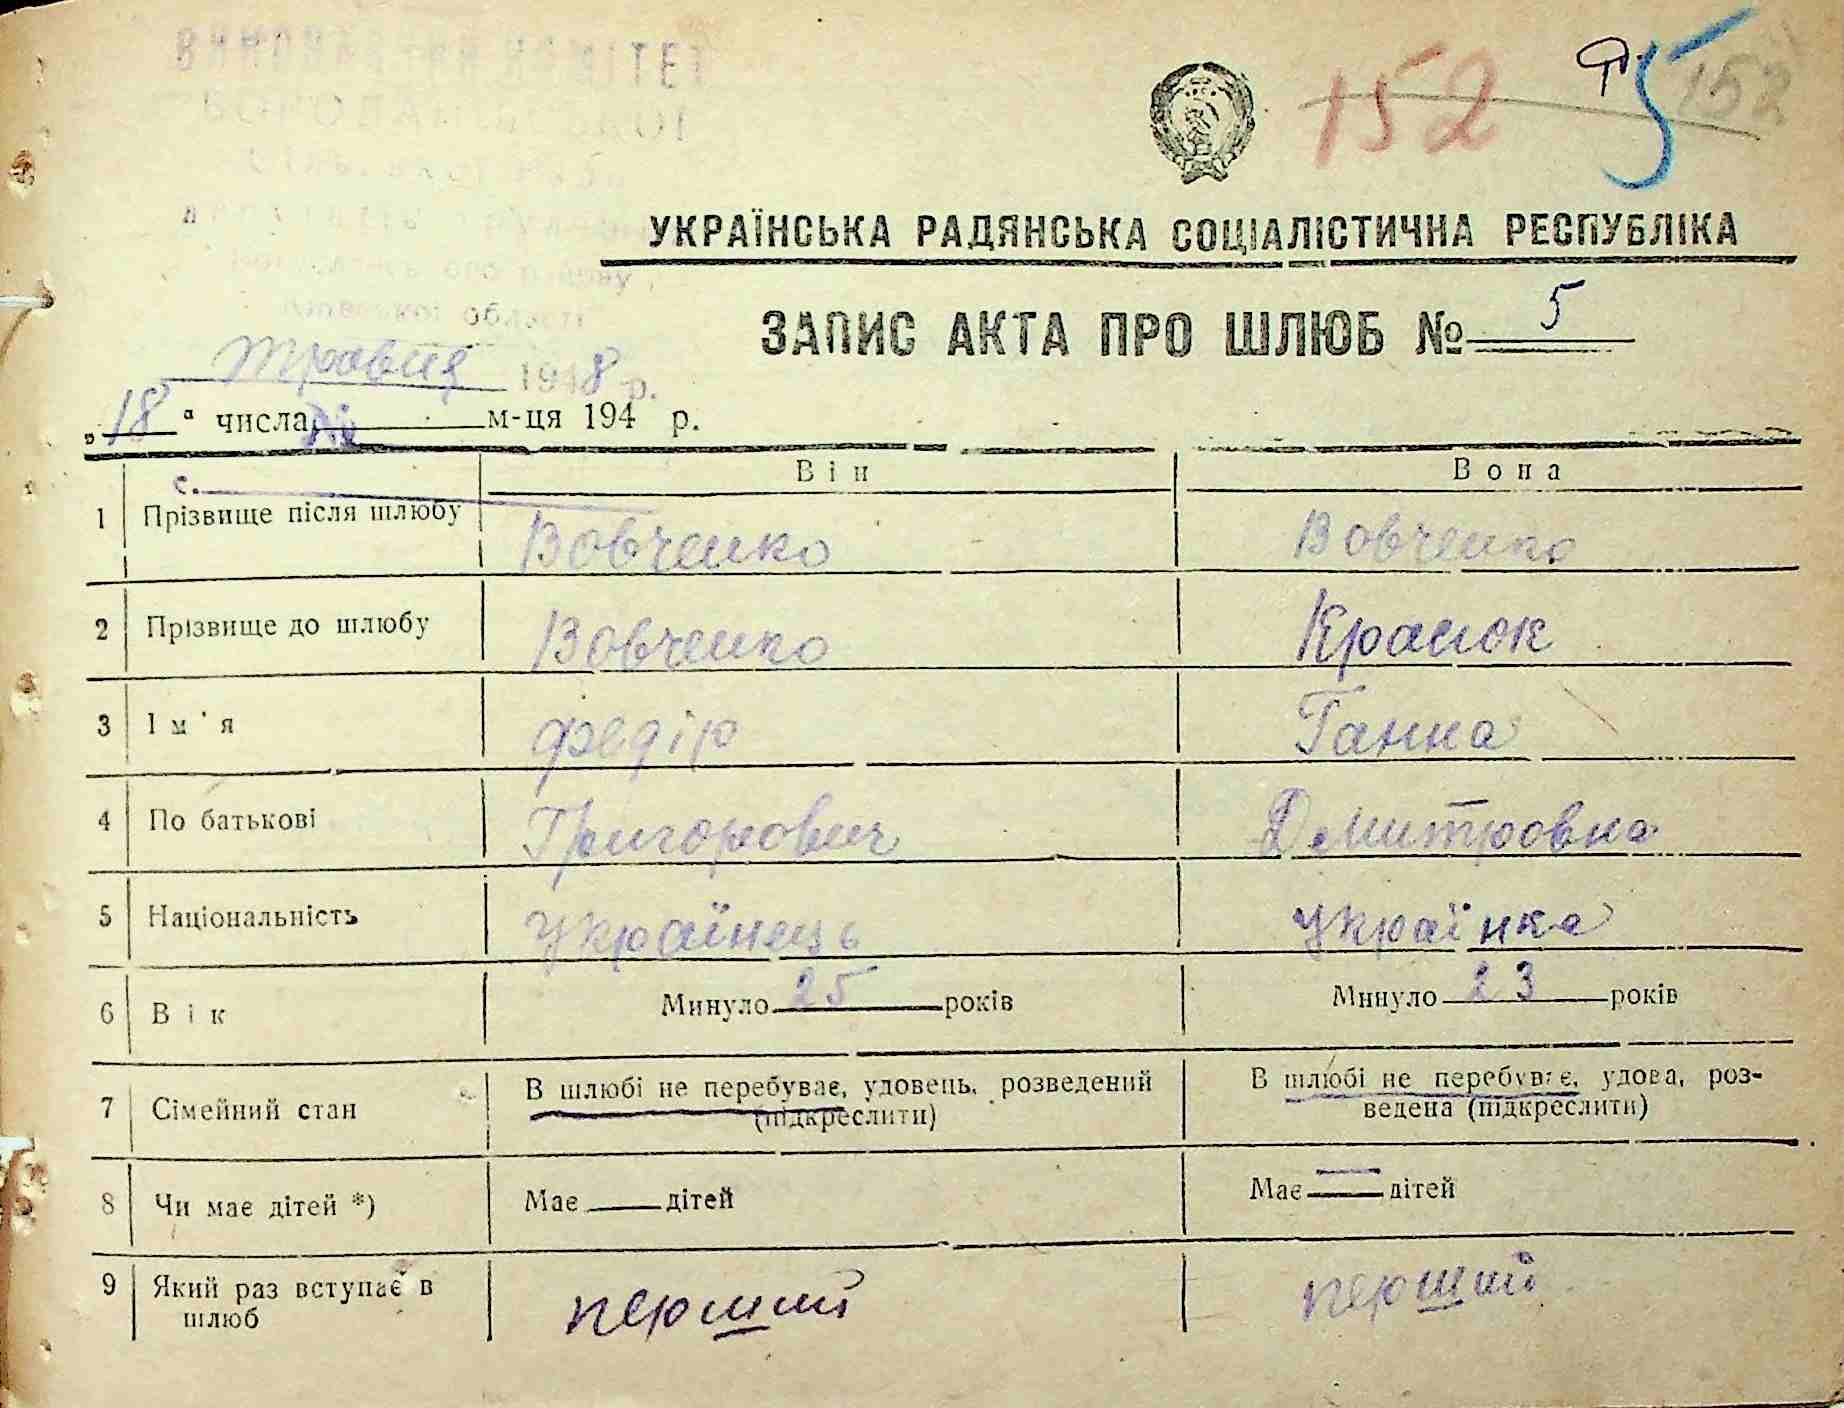 152 5 152
УКРАЇНСЬКА РАДЯНСЬКА СОЦІАЛІСТИЧНА РЕСПУБЛІКА
ЗАПИС АКТА ПРО ШЛЮБ № 5
травня 1948 р.
„18“ числа м-ця 194 р.
Він Вона
с.
1 Прізвище після шлюбу Вовченко Вовченко
2 Прізвище до шлюбу Вовченко Красюк
3 Ім'я Федір Ганна
4 По батькові Григорович Дмитровна
5 Національність Українець Українка
6 Вік Минуло 25 років Минуло 23 років
7 Сімейний стан В шлюбі не перебуває, удовець, розведений В шлюбі не перебуває, удова, роз-
(підкреслити) ведена (підкреслити)
8 Чи має дітей *) Має — дітей Має — дітей
9 Який раз вступає в перший перший
шлюб